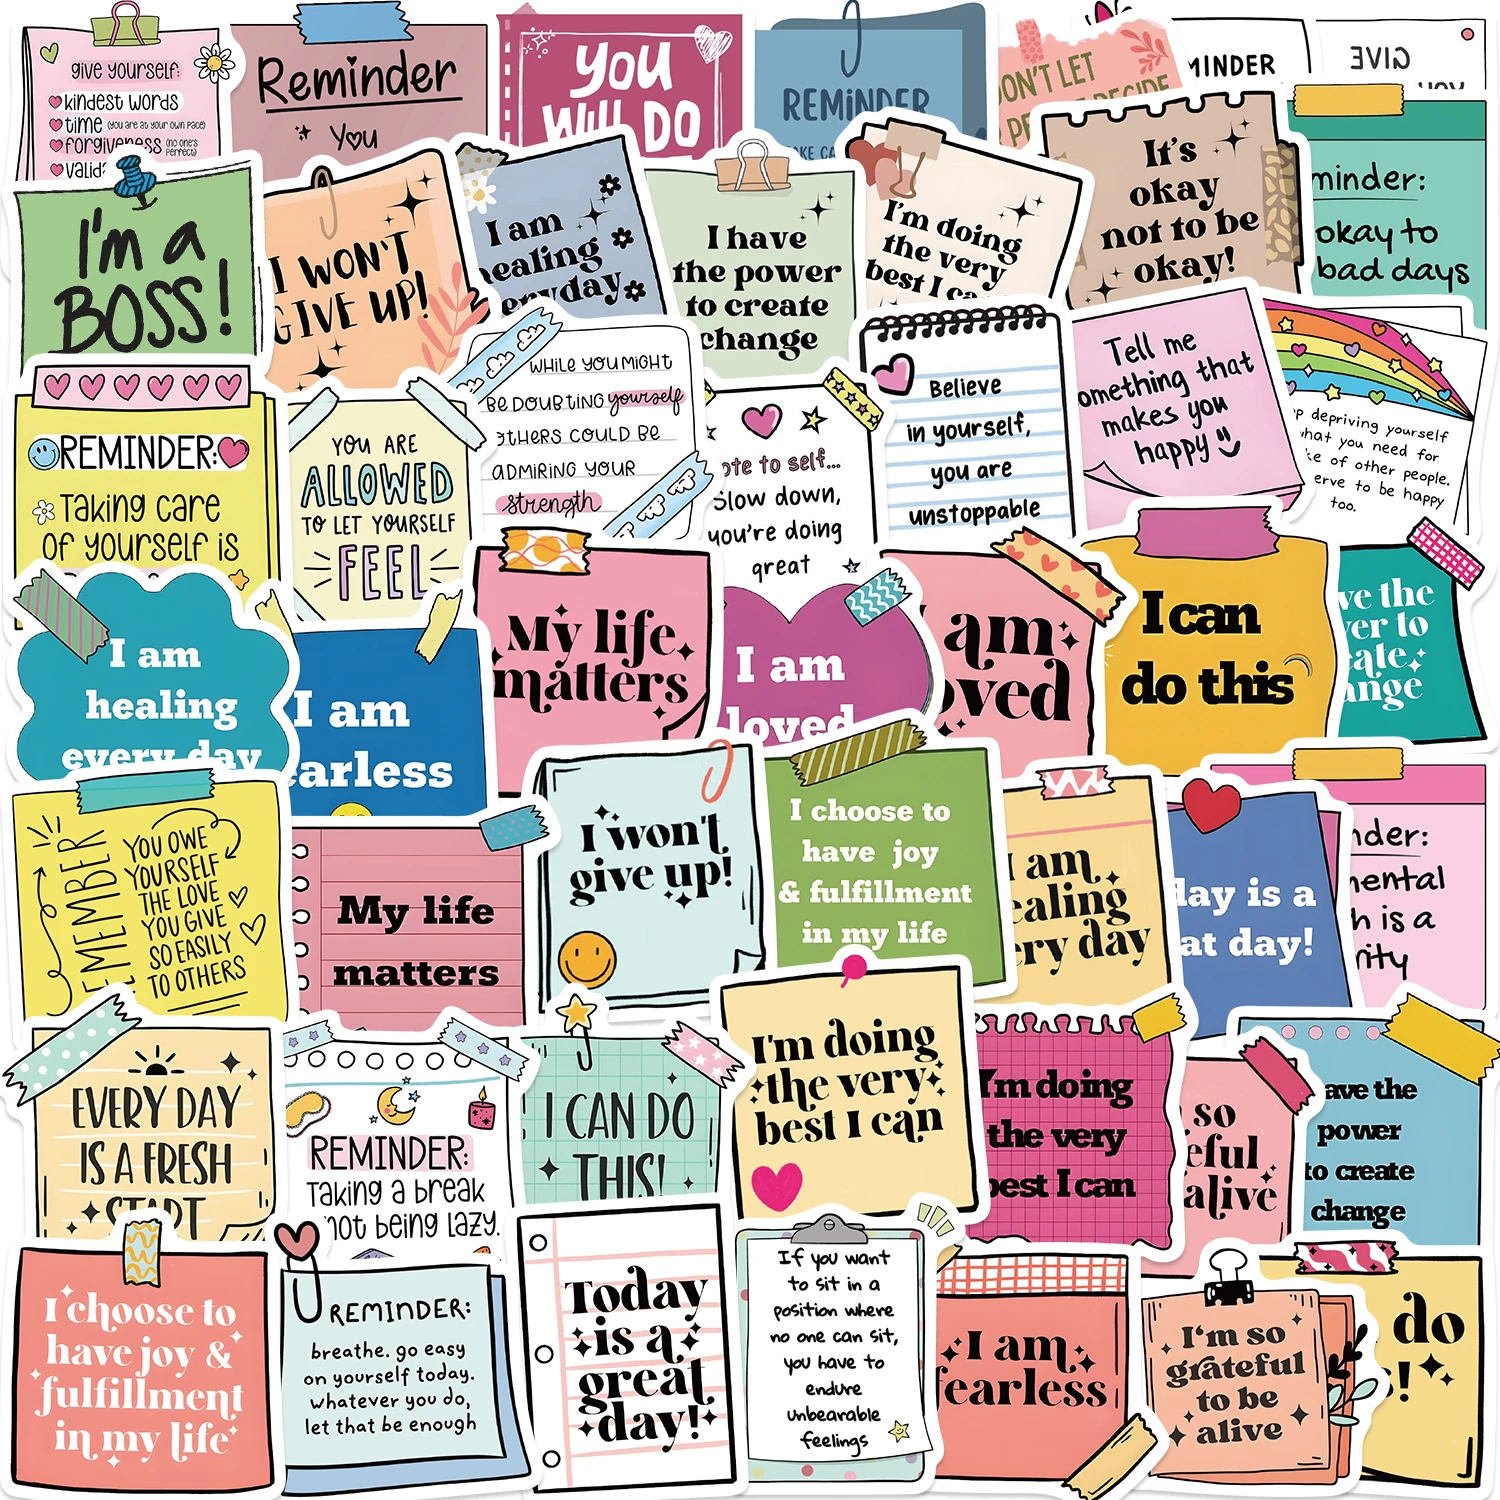 give yourself:
kindest words
time (you are at your own pace)
forgiveness (no one's perfect)
Reminder
You
YOU
WILL DO
REMINDER
DON'T LET
DECIDE
REMINDER
GIVE
YOU
I'm a
BOSS!
I WON'T
GIVE UP!
I am
healing
everyday
I have
the power
to create
change
I'm doing
the very
best I can
It's
okay
not to be
okay!
minder:
okay to
bad days
REMINDER:
Taking care
of yourself is
YOU ARE
ALLOWED
TO LET YOURSELF
FEEL
WHILE YOU MIGHT
BE DOUBTING yourself
OTHERS COULD BE
ADMIRING YOUR
strength
note to self...
Slow down,
you're doing
great
Believe
in yourself,
you are
unstoppable
Tell me
something that
makes you
happy
depriving yourself
what you need for
of other people.
to be happy
too.
I am
healing
every day
I am
fearless
My life
matters
I am
loved
am
loved
I can
do this
have the
power to
create
change
REMEMBER
YOU OWE
YOURSELF
THE LOVE
YOU GIVE
SO EASILY
TO OTHERS
My life
matters
I won't
give up!
I choose to
have joy
& fulfillment
in my life
I am
healing
every day
day is a
at day!
nder:
mental
h is a
rity
EVERY DAY
IS A FRESH
START
REMINDER:
Taking a break
not being lazy.
I CAN DO
THIS!
I'm doing
the very
best I can
I'm doing
the very
best I can
so
eful
alive
have the
power
to create
change
I choose to
have joy &
fulfillment
in my life
REMINDER:
breathe. go easy
on yourself today.
whatever you do,
let that be enough
Today
is a
great
day!
If you want
to sit in a
position where
no one can sit,
you have to
endure
unbearable
feelings
I am
fearless
I'm so
grateful
to be
alive
do
s!